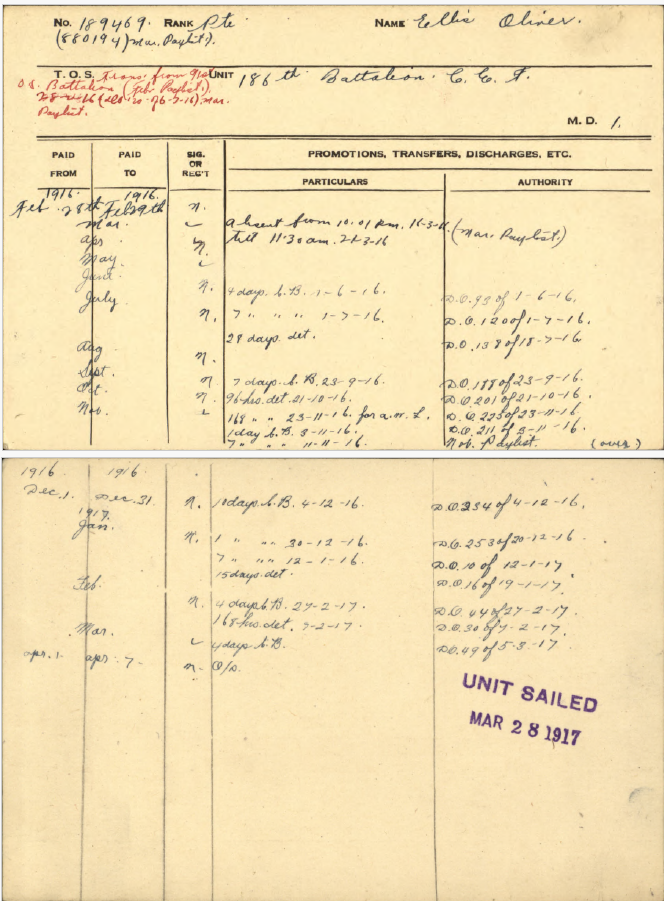 No. 189469. RANK Pte NAME Ellis Oliver.
(880194) Mar. Paylist).
T. O. S. Trans. from 91st UNIT 186th Battalion C. E. F.
O.S. Battalion (Feb. Paylist).
16 (D.O. 20 of 6-7-16) Mar.
Paylist.
M. D. 1.
PAID FROM PAID TO SIG. OR REC'T PROMOTIONS, TRANSFERS, DISCHARGES, ETC.
PARTICULARS AUTHORITY
1916. 1916.
Feb 28th Feb 29th n.
Mar. ✓ Absent from 10.01 p.m. 16-3-16 (Mar. Paylist)
Apr n. till 11:30 am. 21-3-16
May ✓
June n. 4 days C.B. 1-6-16. D.O. 93 of 1-6-16.
July n. 7 " " " 1-7-16. D.O. 120 of 1-7-16.
28 days. det. D.O. 138 of 18-7-16
Aug n.
Sept. n. 7 days. C.B. 23-9-16. D.O. 188 of 23-9-16.
Oct. n. 96 hrs. det. 21-10-16. D.O. 201 of 21-10-16.
Nov. ✓ 168 " " 23-11-16. for a.w.l. D.O. 223 of 23-11-16.
1 day C.B. 3-11-16. D.O. 211 of 3-11-16.
7 " " " 11-11-16. Nov. Paylist. (over)
1916. 1916.
Dec. 1. Dec. 31. n. 10 days C.B. 4-12-16. D.O. 234 of 4-12-16.
1917.
Jan. n. 1 " " " 30-12-16. D.O. 253 of 30-12-16.
7 " " " 12-1-16. D.O. 10 of 12-1-17
15 days. det. D.O. 16 of 19-1-17
Feb. n. 4 days C.B. 27-2-17. D.O. 44 of 27-2-17.
168-hrs. det. 7-2-17. D.O. 30 of 7-2-17.
Mar. ✓ 4 days C.B. D.O. 49 of 5-3-17.
Apr. 1- Apr. 7- n- O/S.
UNIT SAILED
MAR 28 1917